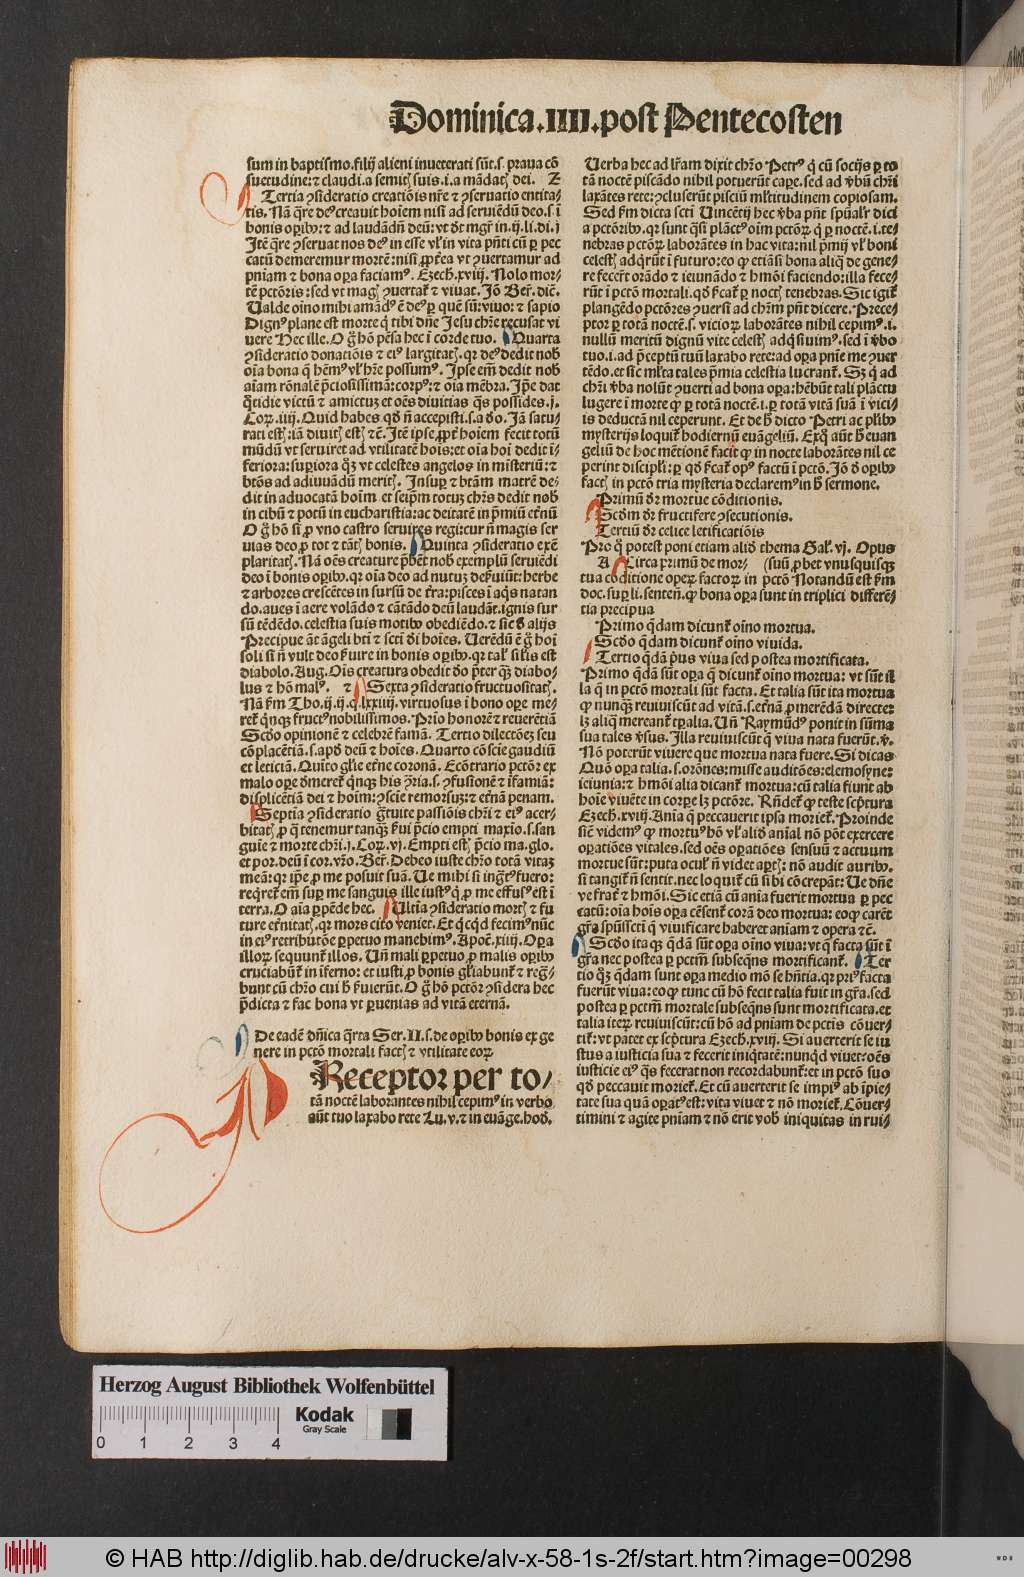 Dominica.IIII.post Pentecosten
sum in baptismo.filij alieni inueterati sũt.s. praua cõ
suetudine: ⁊ claudi.a semitꝭ suis.i.a mãdatꝭ dei. Z
Tertia ꝯsideratio creatiõis nr̃e ⁊ ꝯseruatio entita-
tis. Nã q̃re deꝰ creauit hoĩem nisi ad seruiẽdũ deo.s.ĩ
bonis oꝑibꝰ: ⁊ ad laudãdũ deũ: vt dt mgr̃ in.ij.li.di.j
Itẽ q̃re ꝯseruat nos deꝰ in esse vl̓ in vita pñti cũ ꝑ pec
catũ demeremur mortẽ: nisi ꝓpt̃ea vt ꝯuertamur ad
pñiam ⁊ bona oꝑa faciamꝰ. Ezech.xviij. Nolo mor-
tẽ pctõris: sed vt magꝭ ꝯuertat̃ ⁊ viuat. Jõ Ber̃. dic̃.
Valde oĩno mihi amãdꝰ ẽ deꝰ ꝑ quẽ sũ: viuo: ⁊ sapio
Dignꝰ plane est morte q̓ tibi dñe Jesu chr̃e recusat vi
uere Hec ille. O g̊ hõ pẽsa hec ĩ corde tuo. Quarta
ꝯsideratio donatiõis ⁊ eiꝰ largitatꝭ. qꝛ deꝰ dedit nob̃
oĩa bona q̃ hẽmꝰ vl̓ hr̃e possumꝰ. Ipse em̃ dedit nob̃
aĩam rõnalẽ p̃ciosissimã: corpꝰ: ⁊ oĩa mẽbra. Ip̃e dat
q̃tidie victũ ⁊ amictuꝫ et oẽs diuitias q̃s possides.j.
Coꝝ.iiij. Quid habes qd̓ ñ accepisti.s.a deo. Jã satu-
rati estꝭ: iã diuitꝭ estꝭ ⁊c̃. Itẽ ipse ꝓpt̃ hoĩem fecit totũ
mũdũ vt seruiret ad vtilitatẽ hoĩs: et oĩa hoĩ dedit i-
feriora: suꝑiora q̃ꝫ vt celestes angelos in misteriũ: ⁊
btõs ad adiuuãdũ meritꝭ. Insuꝑ ⁊ btãm matrẽ de-
dit in aduocatã hoĩm et seip̃m totuꝫ chr̃s dedit nob̃
in cibũ ⁊ potũ in eucharistia: ac deitatẽ in p̃miũ et̃nũ
O g̊ hõ si ꝓ vno castro seruires regi: cur ñ magis ser
uias deo ꝓ tot ⁊ tãtꝭ bonis. Quinta ꝯsideratio exẽ
plaritatꝭ. Nã oẽs creature p̃bẽt nob̃ exemplũ seruiẽdi
deo ĩ bonis oꝑibꝰ. qꝛ oĩa deo ad nutuꝫ deẜuiũt: herbe
⁊ arbores crescẽtes in sursũ de t̃ra: pisces ĩ aq̃s natan
do.aues ĩ aere volãdo ⁊ cãtãdo deũ laudãt.ignis sur
sũ tẽdẽdo.celestia suis motibꝰ obediẽdo. ⁊ sic̃ d̓ alijs
Precipue aũt ãgeli bti ⁊ scti di hoĩes. Verẽdũ ẽ g̊ hoĩ
soli si ñ vult deo ẜuire in bonis oꝑibꝰ. qꝛ tal̓ sil̓is est
diabolo. Aug. Oĩs creatura obedit deo p̃ter q̃ꝫ diabo-
lus ⁊ hõ malꝰ. ⁊ Sexta ꝯsideratio fructuositatꝭ.
Nã ẜm Tho.ij.ij.q.lxxiiij. virtuosus ĩ bono oꝑe me-
ret̃ q̃nqꝫ fructꝰ nobilissimos. Primo honorẽ ⁊ reuerẽtiã
Scd̓o opinionẽ ⁊ celebrẽ famã. Tertio dilectõeꝫ seu
cõplacẽtiã.s.apd̓ deũ ⁊ hoĩes. Quarto cõscie gaudiũ
et leticiã. Quĩto gl̓ie et̃ne coronã. Ecõtrario pctõr ex
malo oꝑe demeret̃ q̃nqꝫ his ꝯtraria.s. ꝯfusionẽ ⁊ ĩfamiã:
displicẽtiã dei ⁊ hoĩm: ꝯscie remorsuꝫ: ⁊ et̃nã penam.
Septĩa ꝯsideratio gr̃tuite passiõis chr̃i ⁊ eiꝰ acer-
bitatꝭ ꝓ q̃ tenemur tanq̃ꝫ ẜui p̃cio empti maxĩo.s.san
guie ⁊ morte chr̃i.j. Coꝝ.vj. Empti estꝭ p̃cio ma.glo.
et por.deũ ĩ cor.vr̃o. Ber̃. Debeo iuste chr̃o totã vitaꝫ
meã: qꝛ ip̃e ꝓ me posuit suã. Ue mihi si ingr̃tꝰ fuero:
reqret̃ em̃ suꝑ me sanguis ille iustꝰ q̓ ꝓ me effusꝰ est ĩ
terra. O aĩa ꝑpẽde hec. Ultĩa ꝯsideratio mortꝭ ⁊ fu
ture et̃nitatꝭ. qꝛ mors cito veniet. Et qc̓qd fecimꝰ nũc
in eiꝰ retributõe ꝑpetuo manebimꝰ. Apoc̃.xiiij. Oꝑa
illoꝝ sequunt̃ illos. Un̄ mali ꝑpetuo ꝓ malis oꝑibꝰ
cruciabũt̃ in ĩferno: et iusti ꝓ bonis gl̓iabunt̃ ⁊ regna-
bunt cũ chr̃o cui hic ẜuierũt. O g̊ hõ pctõr ꝯsidera hec
p̃dicta ⁊ fac bona vt ꝑuenias ad vitã eternã.
De eadẽ dñica q̃rta Ser.II.s.de oꝑibꝰ bonis ex ge
nere in pctõ mortali factꝭ ⁊ vtilitate eoꝝ
Receptor per to-
tã noctẽ laborantes nihil cepimꝰ in verbo
aũt tuo laxabo rete Lu.v. ⁊ in euãge.hod̓.
Verba hec ad lr̃am dixit chr̃o Petrꝰ q̓ cũ socijs ꝑ to
tã noctẽ piscãdo nihil potuerũt caꝑe.sed ad ṽbũ chr̃i
laxãtes rete: ꝯcluserũt pisciũ ml̓titudinem copiosam.
Sed ẜm dicta scti Vincẽtij hec ṽba pñt spũalr̃ dici
a pctõribꝰ. qꝛ sunt q̃si plãctꝰ oĩm pctõꝝ q̓ ꝑ noctẽ.i.te-
nebras pctõꝝ laborãtes in hac vita: nil p̃mij vl̓ boni
celestꝭ adq̓rũt ĩ futuro: eo qꝫ etiã si bona aliq̃ de gene-
re fecer̃t orãdo ⁊ ieiunãdo ⁊ hm̃õi faciendo: illa fece-
rũt ĩ pctõ mortali.qd̓ ẜcat̃ ꝑ noctꝭ tenebras. Sic igit̃
plangẽdo pctõres ꝯuersi ad chr̃m pñt dicere. Prece-
ptor ꝑ totã noctẽ.s. vicioꝝ laborãtes nihil cepimꝰ.i.
nullũ meritũ dignũ vite celestꝭ adq̓siuimꝰ.sed ĩ ṽbo
tuo.i.ad p̃ceptũ tuũ laxabo rete: ad oꝑa pñie me ꝯuer
tẽdo.et sic ml̓ta tales p̃mia celestia lucrant̃. Sꝫ q̓ ad
chr̃i ṽba nolũt ꝯuerti ad bona oꝑa: hẽbũt tali plãctu
lugere ĩ morte qꝫ ꝑ totã noctẽ.i.ꝑ totã vitã suã ĩ vici-
is deductã nil ceperunt. Et de hoc dicto Petri ac pluribꝰ
mysterijs loquit̃ hodiernũ euãgeliũ. Exq̊ aũt h̓ euan
geliũ de hoc mẽtionẽ facit qꝫ in nocte laborãtes nil ce
perint discipl̓i: ꝑ qd̓ ẜcat̃ opꝰ factũ ĩ pctõ. Jõ de oꝑibꝰ
factꝭ in pctõ tria mysteria declaremꝰ in h̓ sermone.
Primũ dr̃ mortue cõditionis.
Scd̓m dr̃ fructifere ꝯsecutionis.
Tertiũ dr̃ celice letificatiõis
Pro q̊ potest poni etiam aliud thema Gal̓.vj. Opus
A Circa primũ de mor- (suũ ꝓbet vnusquisqꝫ
tua cõditione oꝑeꝝ factoꝝ in pctõ Notandũ est ẜm
doc.suꝑ li.senteñ. qꝫ bona oꝑa sunt in triplici differẽ-
tia precipua
Primo q̃dam dicunt̃ oĩno mortua.
Scd̓o q̃dam dicunt̃ oĩno viuida.
Tertio q̃dã pꝰ viua sed postea mortificata.
Primo q̃dã sũt oꝑa q̃ dicunt̃ oĩno mortua: vt sũt il
la q̃ in pctõ mortali sũt facta. Et talia sũt ita mortua
qꝫ nunqꝫ reuiuiscũt ad vitã.s.et̃nã ꝓmerẽdã directe:
lꝫ aliq̃ mereant̃ tꝑalia. Un̄ Raymũdꝰ ponit in sũma
sua tales ṽsus. Illa reuiuiscũt q̃ viua nata fuerũt.ṽ.
Nõ poterũt viuere que mortua nata fuere. Si dicas
Quõ oꝑa talia.s.orõnes: misse auditões: elemosyne:
ieiunia: ⁊ hm̃õi alia dicant̃ mortua: cũ talia fiunt ab
hoĩe viuẽte in corꝑe lꝫ pctõre. Rñdet̃ qꝫ teste scp̃tura
Ezech.xviij. Aĩa q̃ peccauerit ipsa moriet̃. Proinde
sic̃ videmꝰ qꝫ mortuꝰ hõ vl̓ aliud aĩal nõ põt exercere
oꝑatiões vitales.sed oẽs oꝑatiões sensuũ ⁊ actuum
mortue sũt: puta oculꝰ ñ videt aꝑtꝰ: nõ audit auribꝰ.
si tangit̃ ñ sentit.nec loquit̃ cũ si bi cõcrepãt: Ue dñe
ve frat̃ ⁊ hm̃õi. Sic etiã cũ aĩa fuerit mortua ꝑ pec
catũ: oĩa hoĩs oꝑa cẽsent̃ corã deo mortua: eo qꝫ carẽt
gr̃a spũsscti q̃ viuificare haberet aniam ⁊ opera ⁊c̃.
Scd̓o itaqꝫ q̃dã sũt oꝑa oĩno viua: vt q̃ facta sũt ĩ
gr̃a nec postea ꝑ pctm̃ subseq̃ns mortificant̃. Ter
tio q̃ꝫ q̃dam sunt oꝑa medio mõ se hñtia. qꝛ priꝰ facta
fuerũt viua: eo qꝫ tunc cũ hõ fecit talia fuit in gr̃a.sed
postea ꝑ pctm̃ mortale subseq̃ns sunt mortificata.et
talia iteꝝ reuiuiscũt: cũ hõ ad pñiam de pctis cõuer-
tit̃: vt patet ex scp̃tura Ezech.xviij. Si auerterit se iu
stus a iusticia sua ⁊ fecerit iniq̃tatẽ: nunqd viuet: oẽs
iusticie eiꝰ q̃s fecerat non recordabunt̃: et in pctõ suo
qd̓ peccauit moriet̃. Et cũ auerterit se impiꝰ ab ĩpie-
tate sua quã oꝑatꝰ est: vita viuet ⁊ nõ moriet̃. Cõuer-
timini ⁊ agite pñiam ⁊ nõ erit vob̃ iniquitas in rui-
Herzog August Bibliothek Wolfenbüttel
Kodak
Gray Scale
0 1 2 3 4
© HAB http://diglib.hab.de/drucke/alv-x-58-1s-2f/start.htm?image=00298